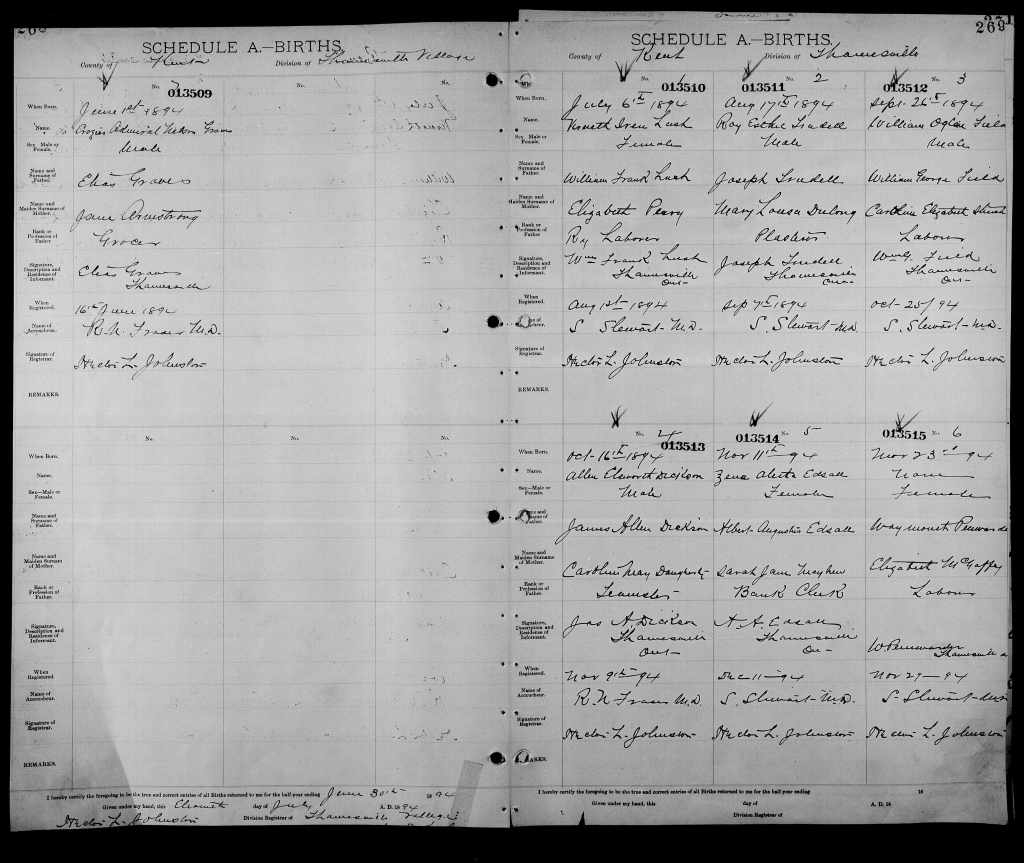 269
SCHEDULE A.—BIRTHS.
County of Kent Division of Thamesville Village
No.
013509
When Born. June 1st 1894
Name. Admiral Nelson Graves
Sex—Male or Female. Male
Name and Surname of Father. Elias Graves
Name and Maiden Surname of Mother. Jane Armstrong
Rank or Profession of Father Grocer
Signature, Description and Residence of Informant. Elias Graves
Thamesville
When Registered. 16th June 1894
Name of Accoucheur. R. N. Fraser M.D.
Signature of Registrar. Hector L. Johnston
REMARKS.
No. No. No.
When Born.
Name.
Sex—Male or Female.
Name and Surname of Father.
Name and Maiden Surname of Mother.
Rank or Profession of Father.
Signature, Description and Residence of Informant.
When Registered.
Name of Accoucheur.
Signature of Registrar.
REMARKS.
I hereby certify the foregoing to be the true and correct entries of all Births returned to me for the half-year ending June 30th 1894
Given under my hand, this day of July A. D. 1894
Hector L. Johnston Division Registrar of Thamesville Village
269
SCHEDULE A.—BIRTHS.
County of Kent Division of Thamesville
No. 1 2 No. 3
013510 013511 013512
When Born. July 6th 1894 Aug 17th 1894 Sept. 26th 1894
Name. Kenneth Lush Roy Trudell William Field
Sex—Male or Female. Female Male Male
Name and Surname of Father. William Frank Lush Joseph Trudell William George Field
Name and Maiden Surname of Mother. Elizabeth Perry Mary Louisa Dulong Caroline Elizabeth
Rank or Profession of Father Ry Laborer Plasterer Laborer
Signature, Description and Residence of Informant. Wm Frank Lush Joseph Trudell Wm G. Field
Thamesville Thamesville Thamesville
Ont— Ont— Ont—
When Registered. Aug 1st 1894 Sep 7th 1894 Oct-25/94
Name of Accoucheur. S. Stewart M.D. S. Stewart M.D. S. Stewart—M.D.
Signature of Registrar. Hector L. Johnston Hector L. Johnston Hector L. Johnston
REMARKS.
No. 4 5 No. 6
013513 013514 013515
When Born. Oct-16th 1894 Nov 11th-94 Nov 23rd-94
Name. Allen Elsworth Dickson Zena Aleita Edsall None
Sex—Male or Female. Male Female Female
Name and Surname of Father. James Allen Dickson Albert Augustus Edsall
Name and Maiden Surname of Mother. Caroline May Daugherty Sarah Jane Mayhew Elizabeth McGaffey
Rank or Profession of Father. Teamster Bank Clerk Laborer
Signature, Description and Residence of Informant. Jas A. Dickson A. A. Edsall
Thamesville Thamesville Thamesville
Ont— Ont—
When Registered. Nov 9th-94 Dec 11—94 Nov 29—94
Name of Accoucheur. R. N Fraser M.D. S. Stewart—M.D. S. Stewart—M.D.
Signature of Registrar. Hector L. Johnston Hector L. Johnston Hector L. Johnston
I hereby certify the foregoing to be the true and correct entries of all Births returned to me for the half-year ending 18
Given under my hand, this day of A. D. 18
Division Registrar of